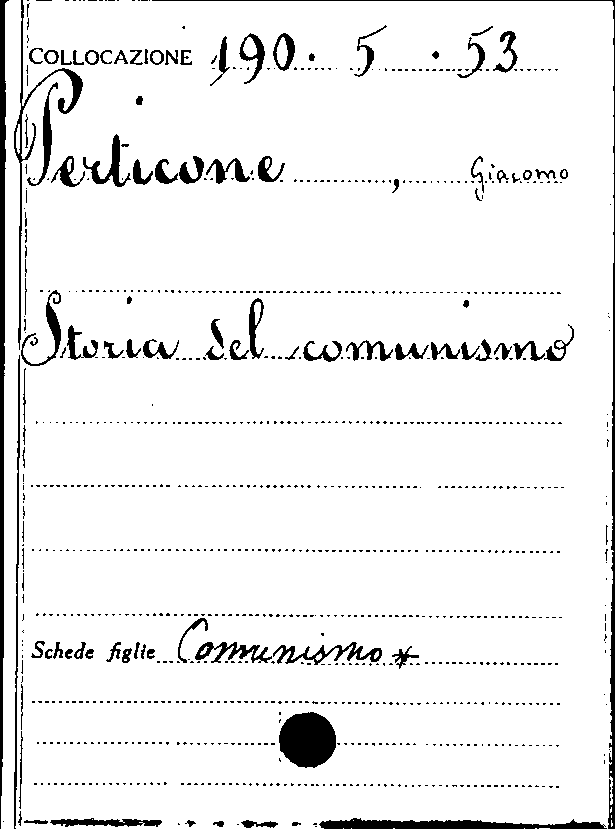 COLLOCAZIONE 190. 5 . 53
Perticone , Giacomo
Storia del comunismo
Schede figlie Comunismo *